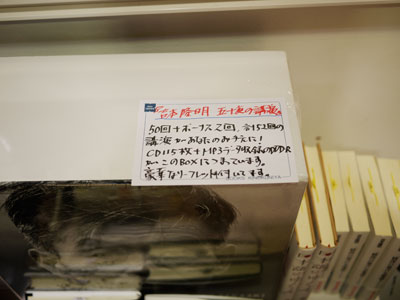 吉本隆明 五十度の講演
50回+ボーナス2回、合計52回の
講演があなたのお手元に!
CD115枚+MP3データ収録のDVD-R
がこのBOXにつまっています。
豪華なリーフレット付いてます。